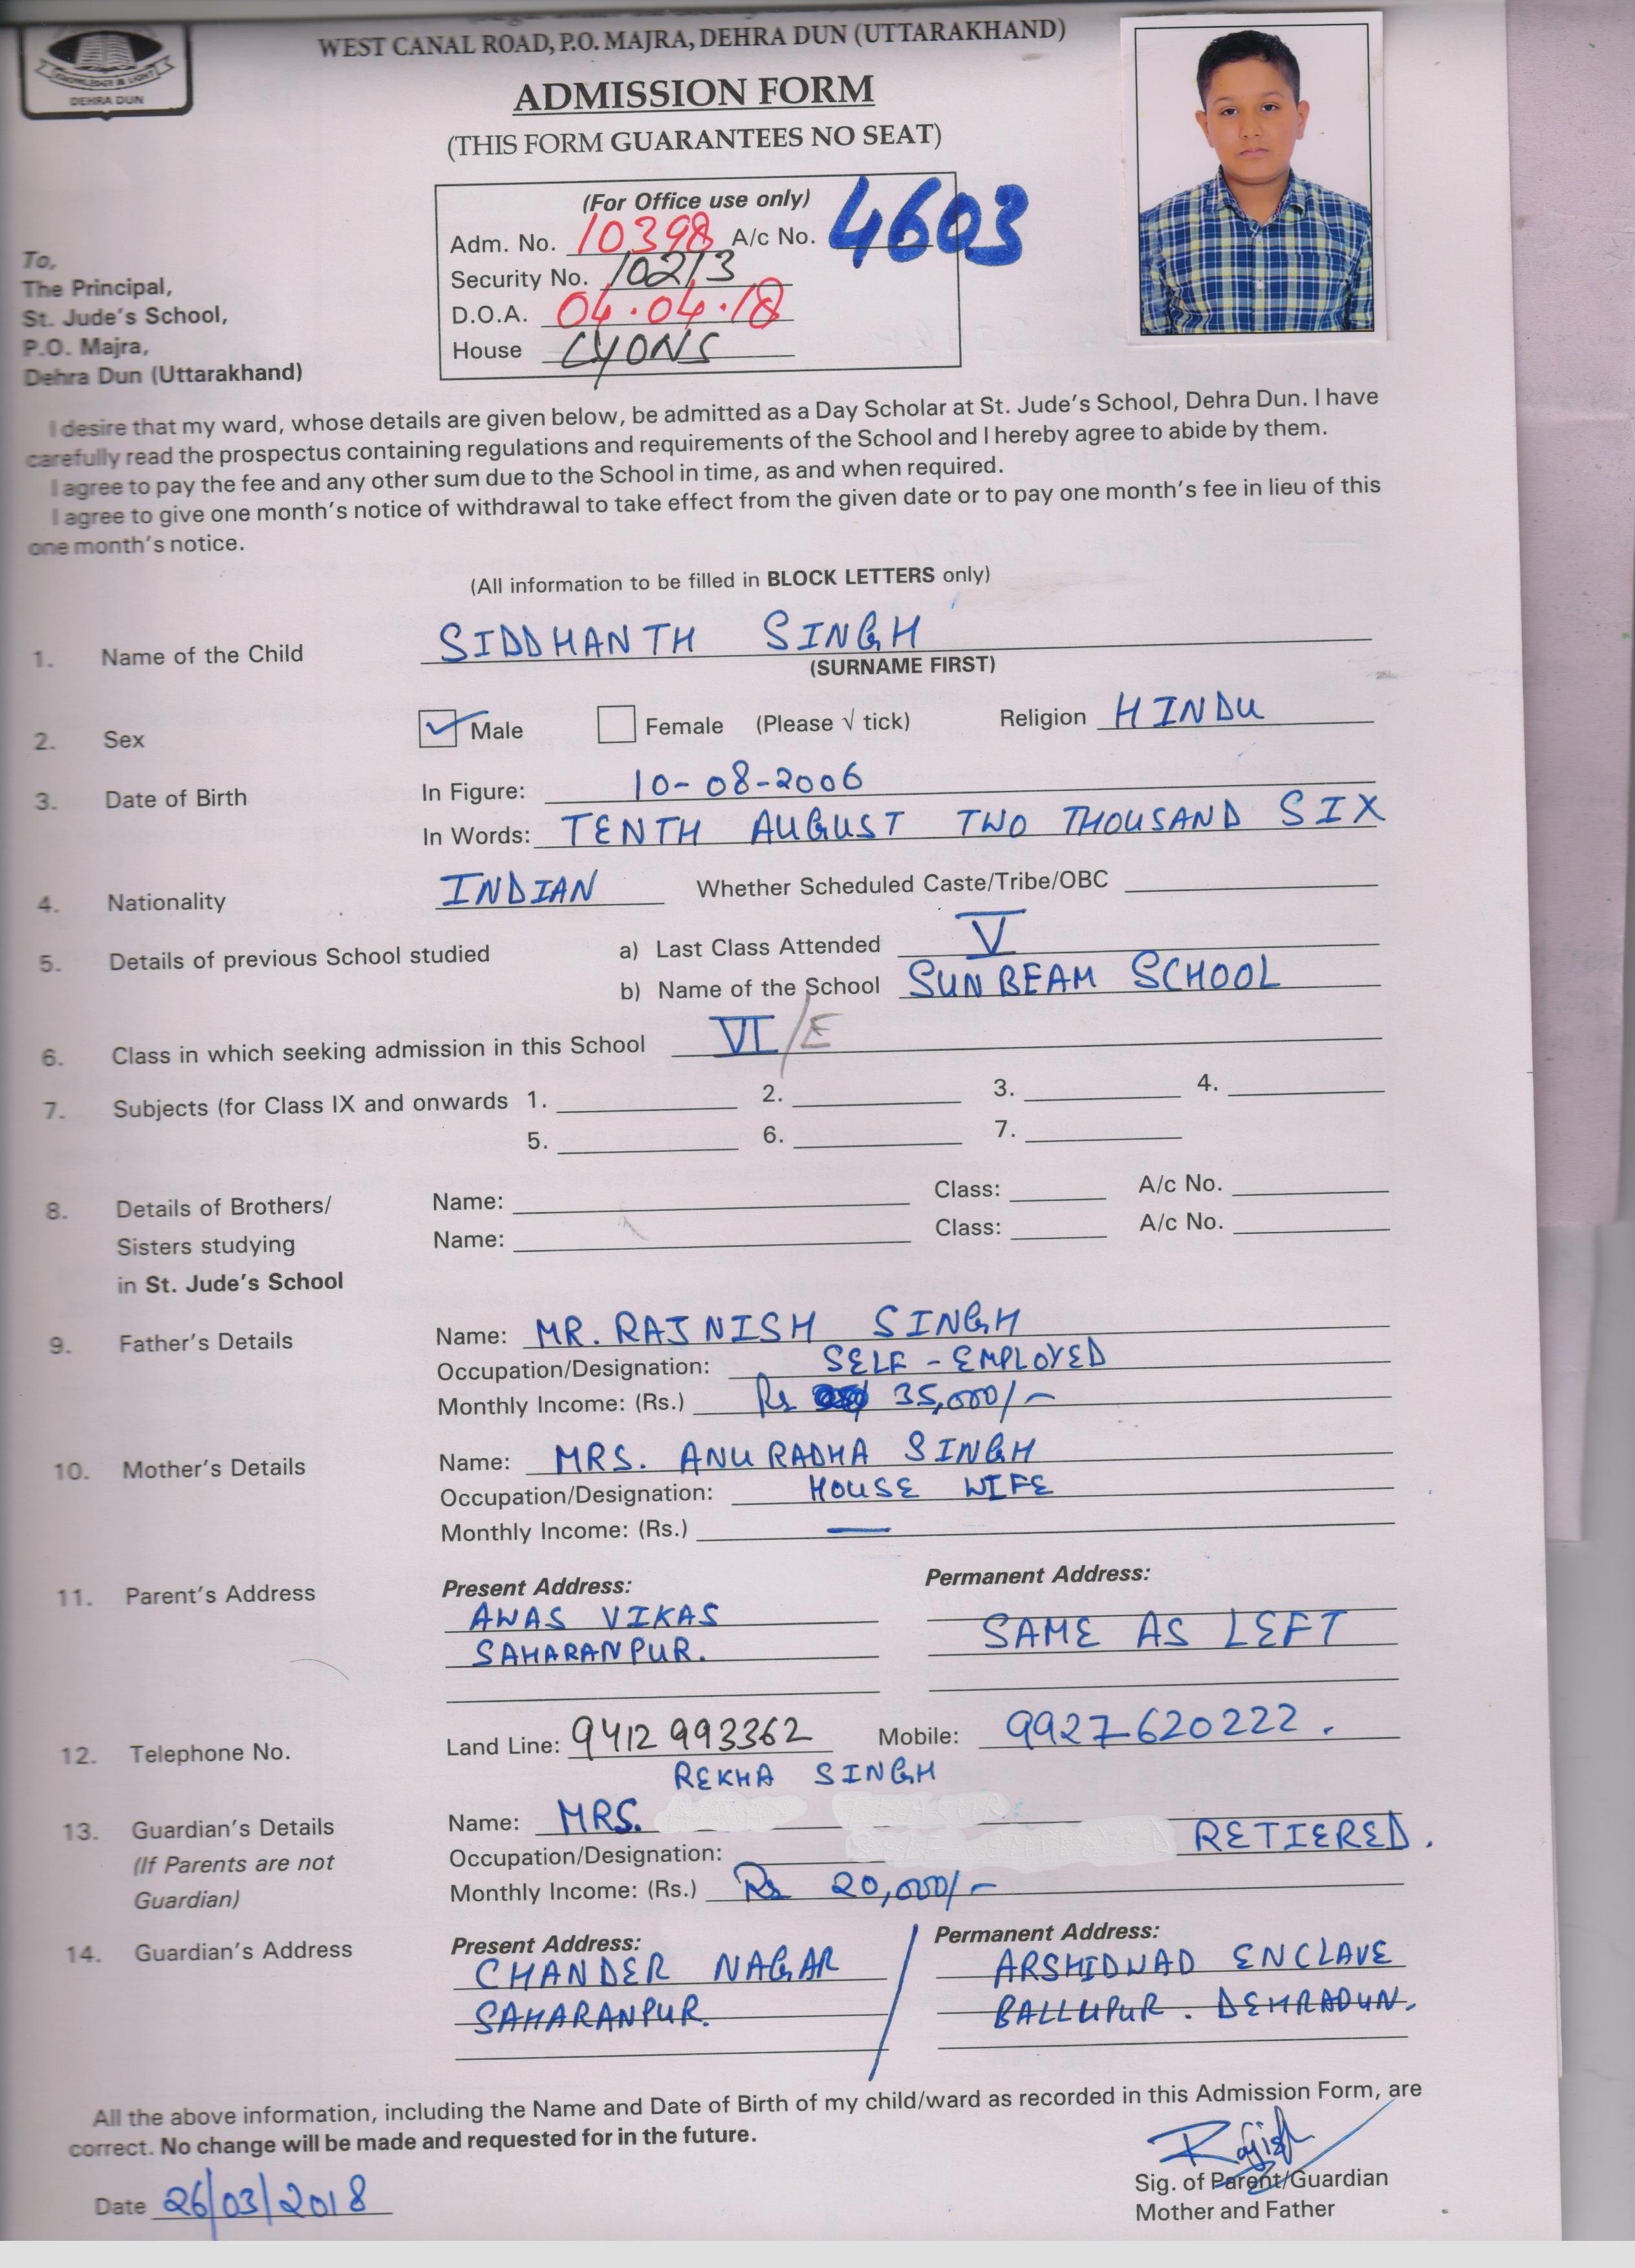 KNOWLEDGE IS LIGHT
DEHRA DUN
WEST CANAL ROAD, P.O. MAJRA, DEHRA DUN (UTTARAKHAND)
ADMISSION FORM
(THIS FORM GUARANTEES NO SEAT)
(For Office use only)
Adm. No. 10398 A/c No. 4603
Security No. 10213
D.O.A. 04.04.18
House LYONS
To,
The Principal,
St. Jude's School,
P.O. Majra,
Dehra Dun (Uttarakhand)
I desire that my ward, whose details are given below, be admitted as a Day Scholar at St. Jude's School, Dehra Dun. I have
carefully read the prospectus containing regulations and requirements of the School and I hereby agree to abide by them.
I agree to pay the fee and any other sum due to the School in time, as and when required.
I agree to give one month's notice of withdrawal to take effect from the given date or to pay one month's fee in lieu of this
one month's notice.
(All information to be filled in BLOCK LETTERS only)
1. Name of the Child SIDDHANTH SINGH
(SURNAME FIRST)
2. Sex Male Female (Please √ tick) Religion HINDU
3. Date of Birth In Figure: 10-08-2006
In Words: TENTH AUGUST TWO THOUSAND SIX
4. Nationality INDIAN Whether Scheduled Caste/Tribe/OBC
5. Details of previous School studied a) Last Class Attended V
b) Name of the School SUNBEAM SCHOOL
6. Class in which seeking admission in this School VI/E
7. Subjects (for Class IX and onwards 1. 2. 3. 4.
5. 6. 7.
8. Details of Brothers/ Name: Class: A/c No.
Sisters studying Name: Class: A/c No.
in St. Jude's School
9. Father's Details Name: MR. RAJNISH SINGH
Occupation/Designation: SELF - EMPLOYED
Monthly Income: (Rs.) Rs 35,000/-
10. Mother's Details Name: MRS. ANURADHA SINGH
Occupation/Designation: HOUSE WIFE
Monthly Income: (Rs.) —
11. Parent's Address Present Address: Permanent Address:
AWAS VIKAS
SAHARANPUR. SAME AS LEFT
12. Telephone No. Land Line: 9412993362 Mobile: 9927620222.
REKHA SINGH
13. Guardian's Details Name: MRS.
(If Parents are not Occupation/Designation: RETIERED.
Guardian) Monthly Income: (Rs.) Rs 20,000/-
14. Guardian's Address Present Address: Permanent Address:
CHANDER NAGAR / ARSHIDWAD ENCLAVE
SAHARANPUR. BALLUPUR. DEHRADUN.
All the above information, including the Name and Date of Birth of my child/ward as recorded in this Admission Form, are
correct. No change will be made and requested for in the future.
Date 26/03/2018 Sig. of Parent/Guardian
Mother and Father